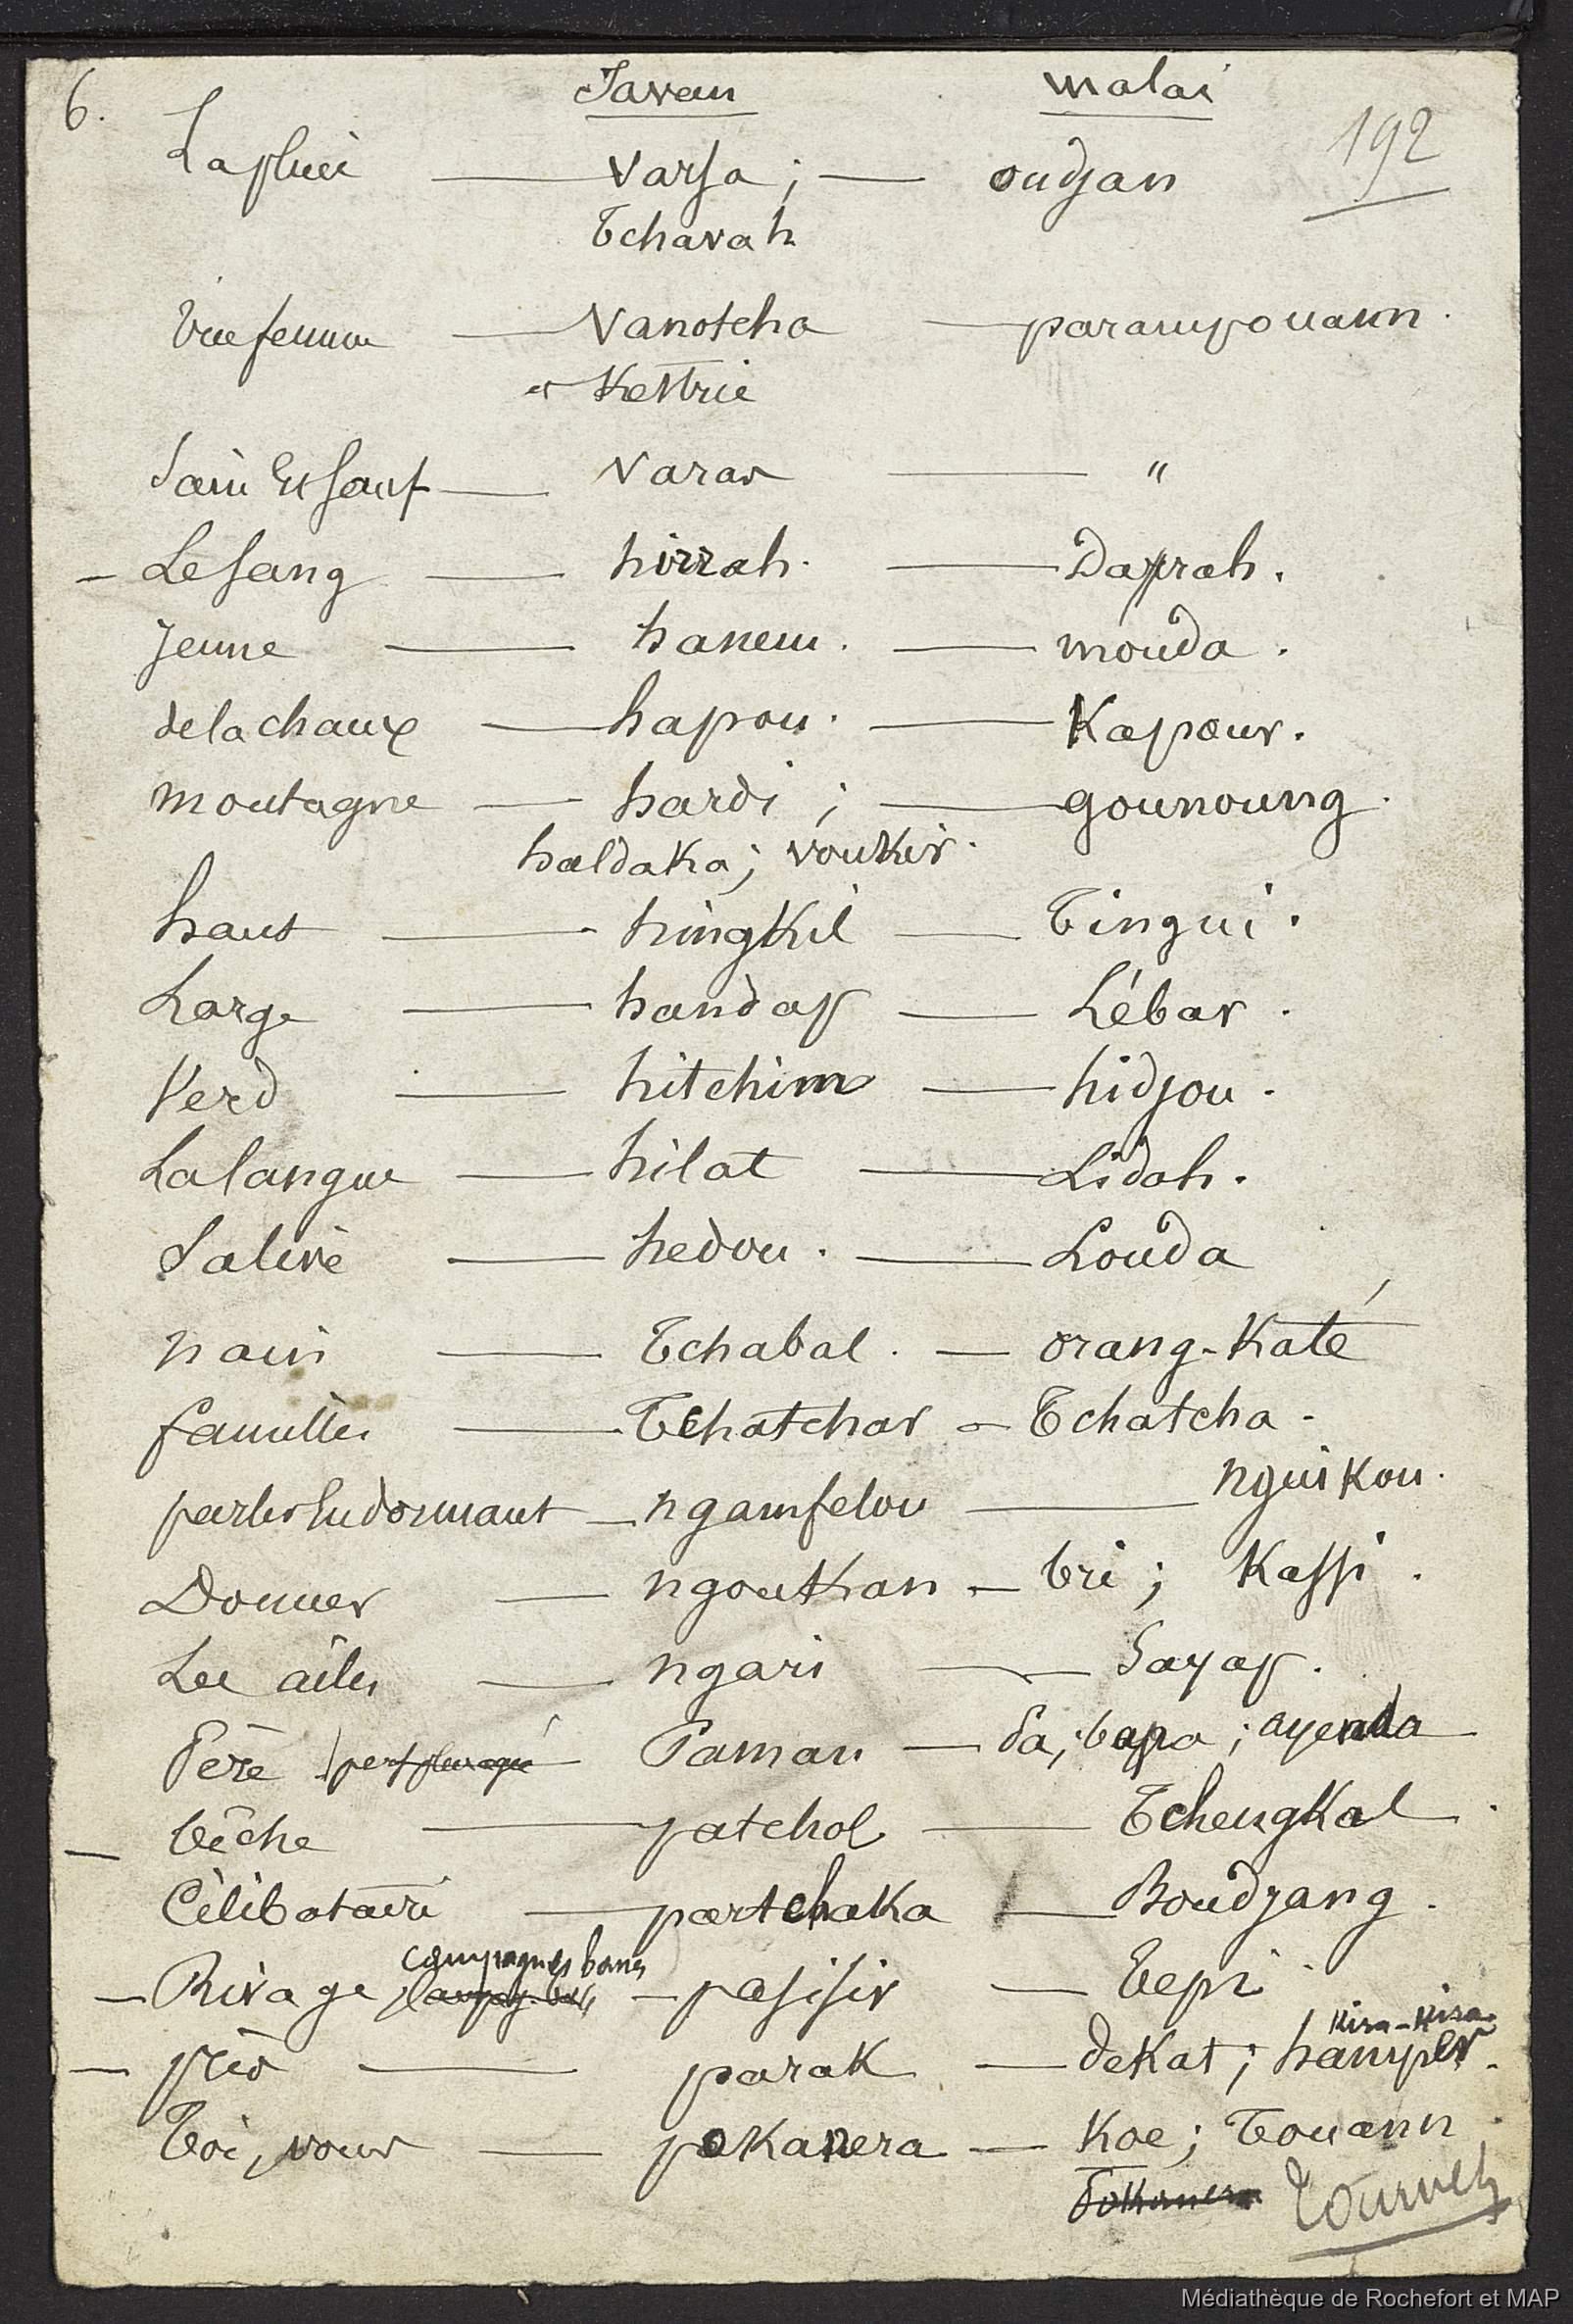 6. Javan malai
192
La pluie — Varsa ; — oudjan
Tcharah
Une femme — Vanotcha — parampouann.
et Kettrie
Sain et sauf — varas — "
— Le sang — hirrah. — Daprah.
Jeune — hanem. — mouda.
de la chaux — hapou. — Kapour.
montagne — hardi ; — gounoung.
haldaka ; voukir.
haut — hingkil — Tingui.
Large — handap — Lébar.
Verd — hitchim — hidjou.
La langue — hilat — Lidah.
Salive — hedou. — Louda
nain — Tchabal. — orang-Katé
familles — Tchatchar — Tchatcha.
parler en dormant — ngamfelou — nguikou.
Donner — ngoukan — bri ; Kassi.
Les ailes — ngari — Sayap.
Père — Paman — Pa ; bapa ; ayenda
— bêche — patchol — Tchengkal.
Célibataire — partchaka — Boudjang.
campagnes bancs
— Rivage — pasisir — Tepi
kira-kira
— près — parak — dekat ; hampir.
Toi, vous — pokanera — Koe ; Touann.
Pokanera
Tournez
Médiathèque de Rochefort et MAP